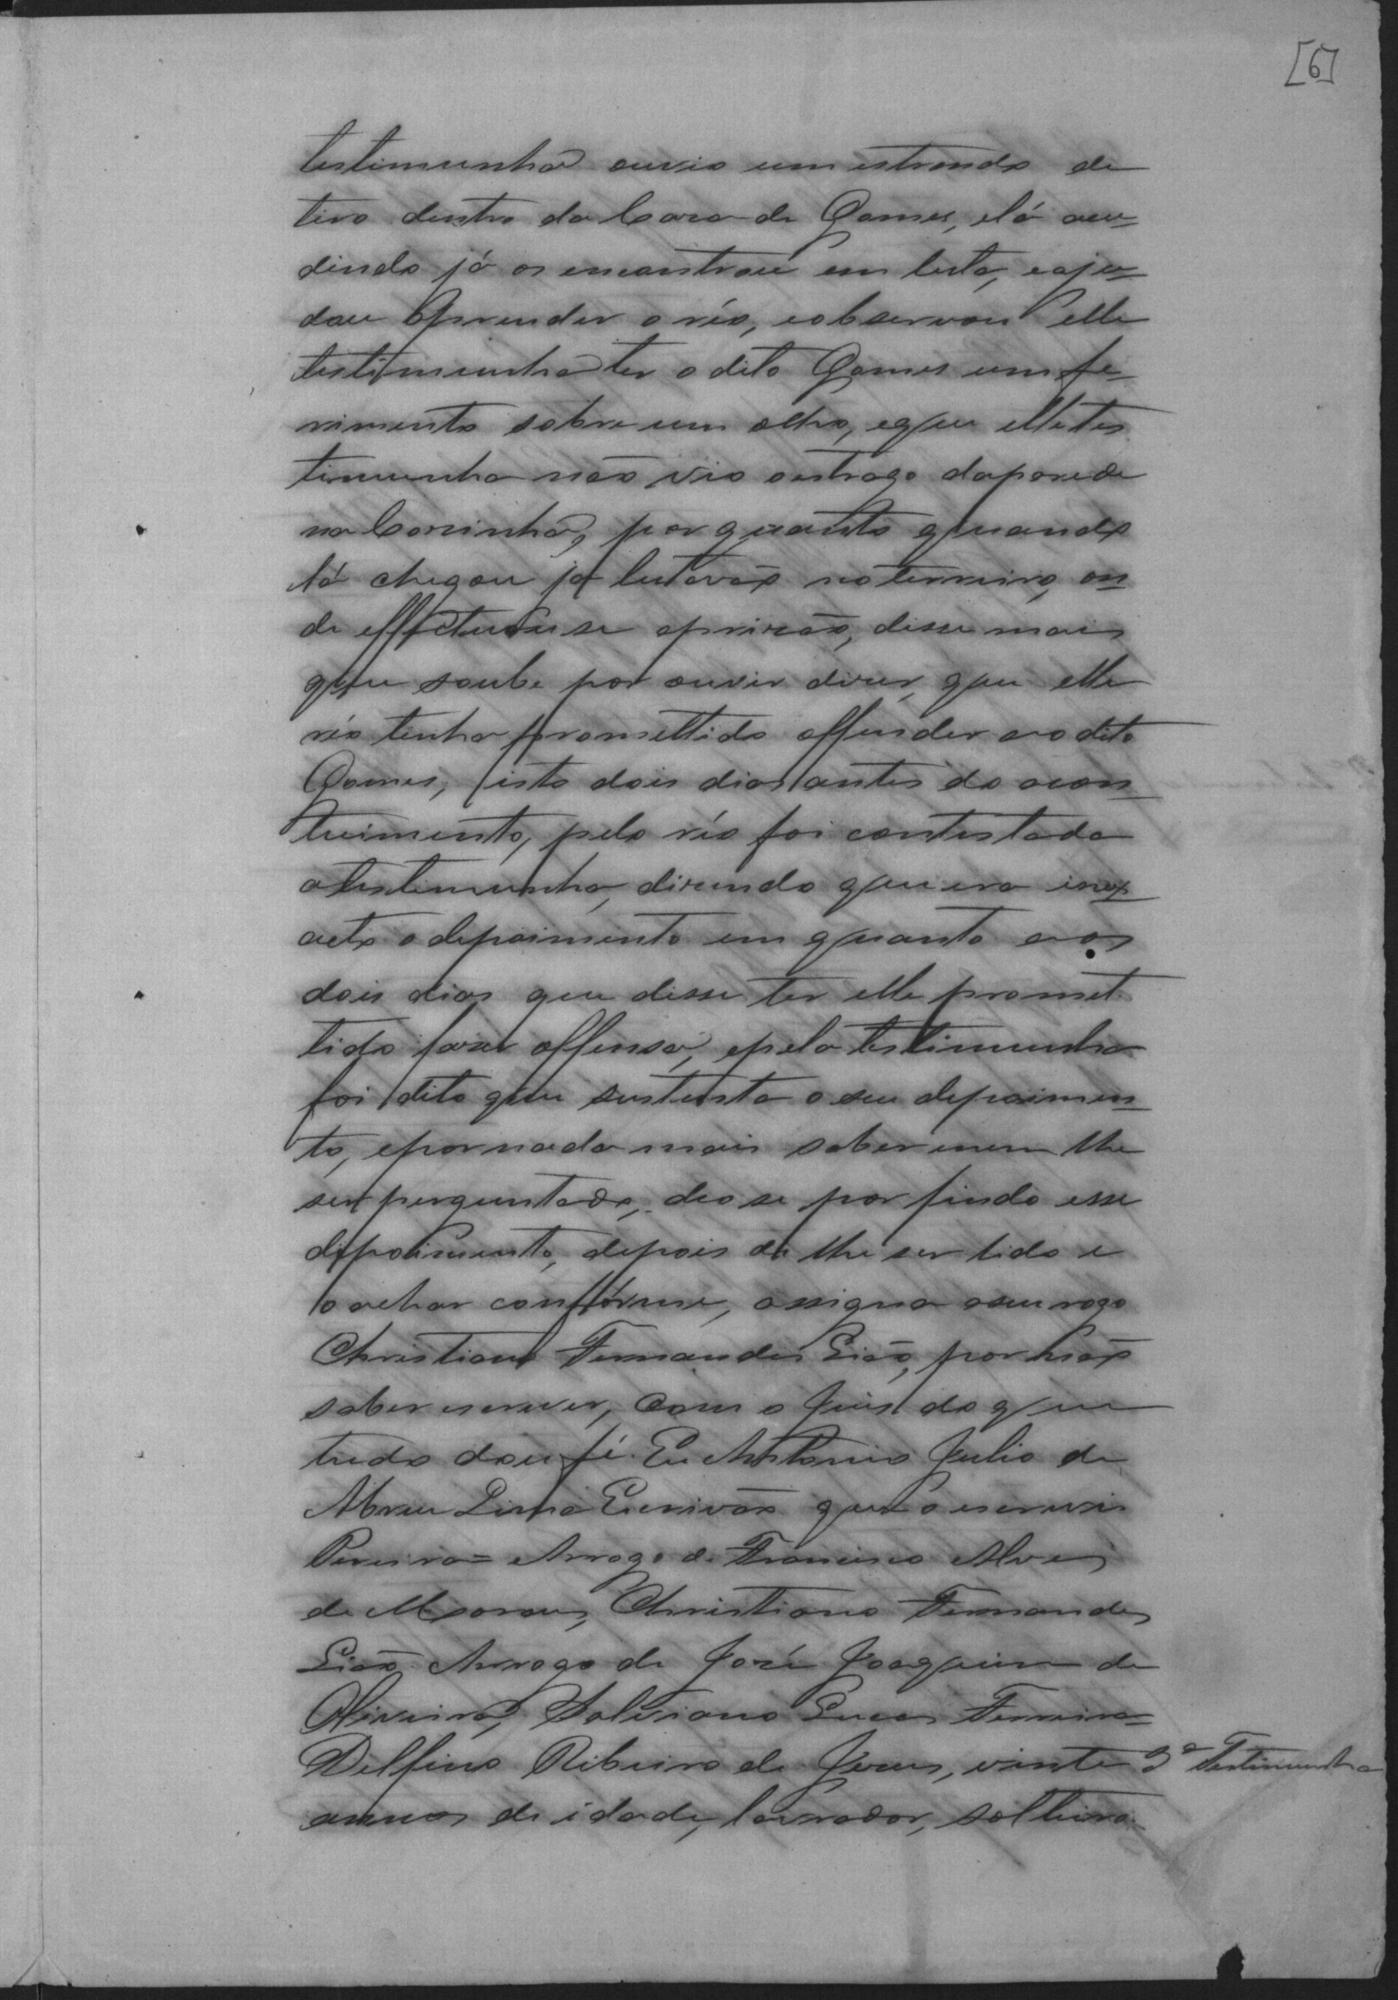 [6]
testimunha ouvio um estrondo de
tiro dentro da Caza de Gomes, e lá acu=
dindo já os encontrou em luta, e aju=
dou aprender o réo, e observou elle
testimunha ter o dito Gomes um fe=
rimento sobre um olho, e que elle tes
timunha não vio o estrago da parede
na Cozinha, por quanto quando
lá chegou já lutavão no terreiro, on=
de effectuou se aprizão, disse mais
que soube por ouvir dizer, que elle
réo tinha promettido offender ao dito
Gomes, isto dois dias antes do acon=
tecimento, pelo réo foi contestada
a testemunha, dizendo que era inex=
acto o depoimento em quanto aos
dois dias que disse ter elle promet
tido fazer offensa, e pela testimunha
foi dito que sustenta o seu depoimen=
to, e por nada mais saber e nem lhe
ser perguntado, deo se por findo esse
depoimento, depois de lhe ser lido e
o achar conforme, assigna a seu rogo
Christiano Fernandes Leão, por não
saber escrever, com o Juis do que
tudo dou fé. Eu Antonio Julio de
Abreu Lima Escrivão que o escrevi
Pereira= Arrogo de Francisco Alves
de Moraes, Christiano Fernandes
Leão. Arrogo de José Joaquim de
Oliveira, Salviano Lucas Ferreira=
Delfino Ribeiro de Jesus, vinte 3ª Testimunha
annos de idade, lavrador, solteiro